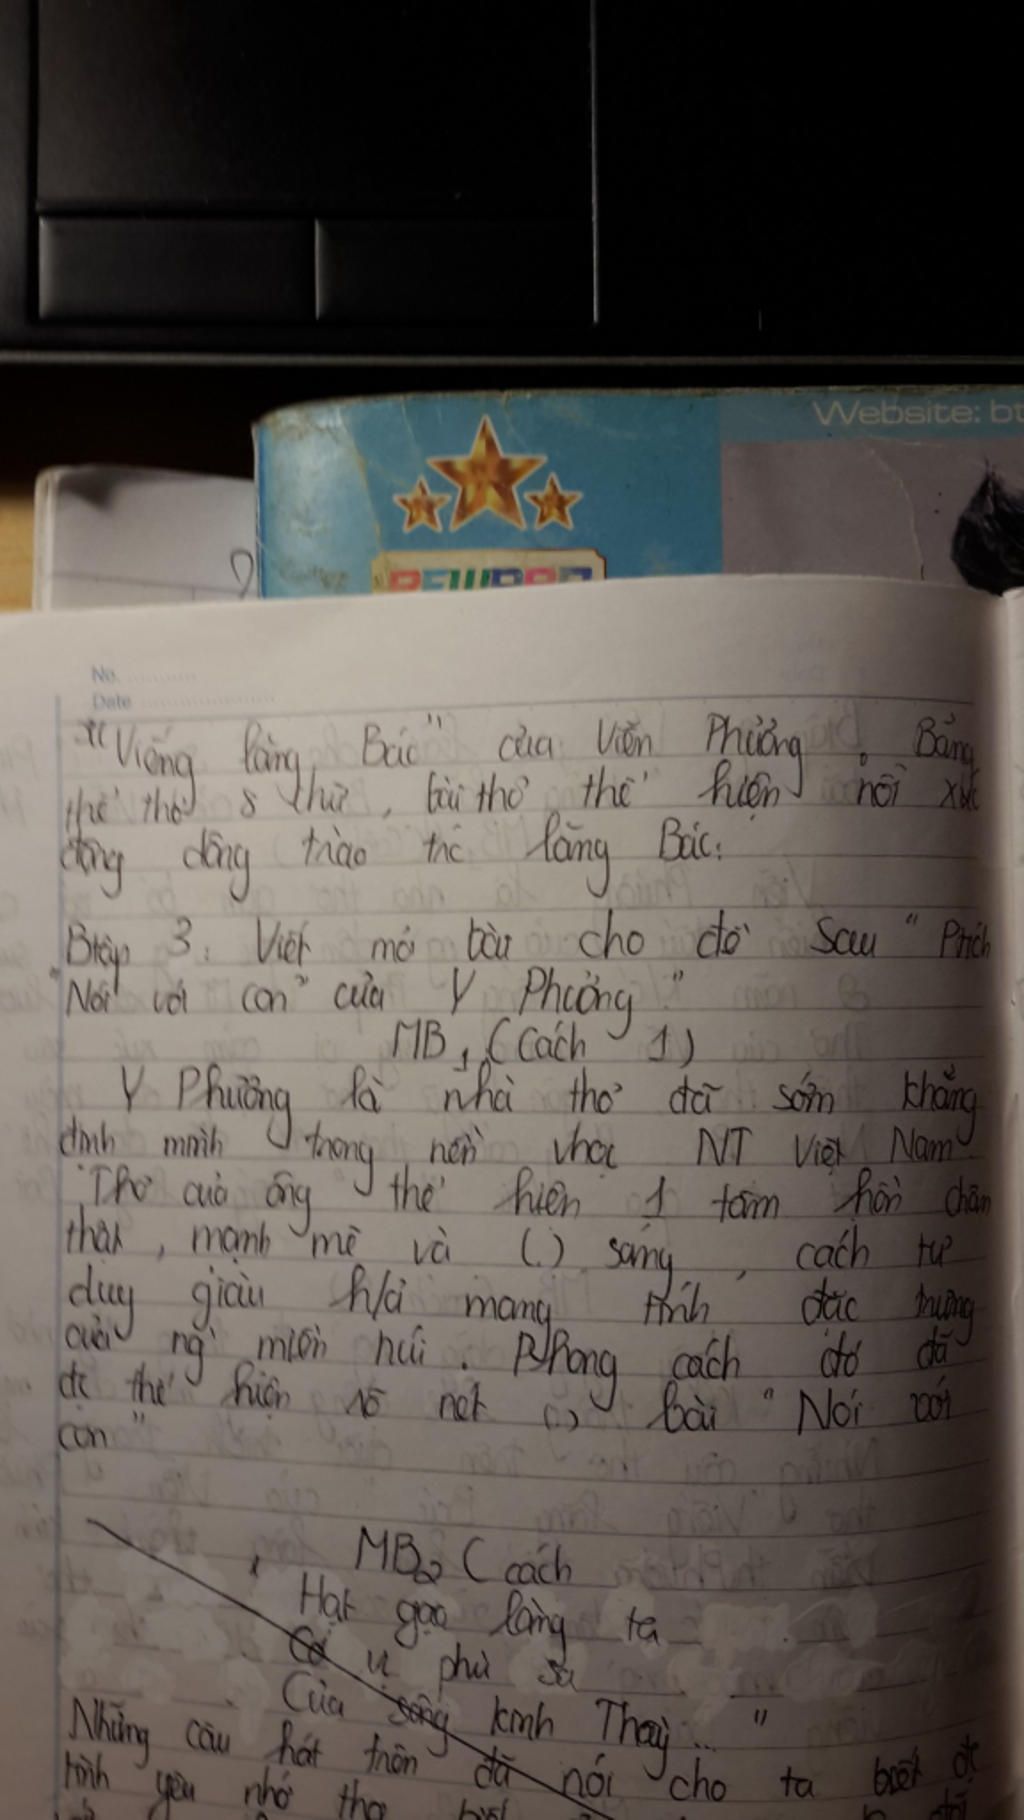 Website: bt
REWARD
No.
Date
"Viếng lăng Bác" của Viễn Phương. Bằng
thể thơ 8 chữ, bài thơ thể hiện nỗi xúc
động dâng trào trc lăng Bác.
Btập 3: Viết mở bài cho đề sau "Ptích
"Nói với con" của Y Phương"
MB1 (Cách 1)
Y Phương là nhà thơ đã sớm khẳng
định mình trong nền vhọc NT Việt Nam
Thơ của ông thể hiện 1 tâm hồn chân
thật, mạnh mẽ và (.) sáng, cách tư
duy giàu h/ả mang tính đặc trưng
của ng` miền núi. Phong cách đó đã
đc thể hiện rõ nét (.) bài "Nói với
con"
MB2 (cách
Hạt gạo làng ta
Có vị phù sa
Của sông kinh Thầy..."
Những câu hát trên đã nói cho ta biết đc
tình yêu nhớ tha